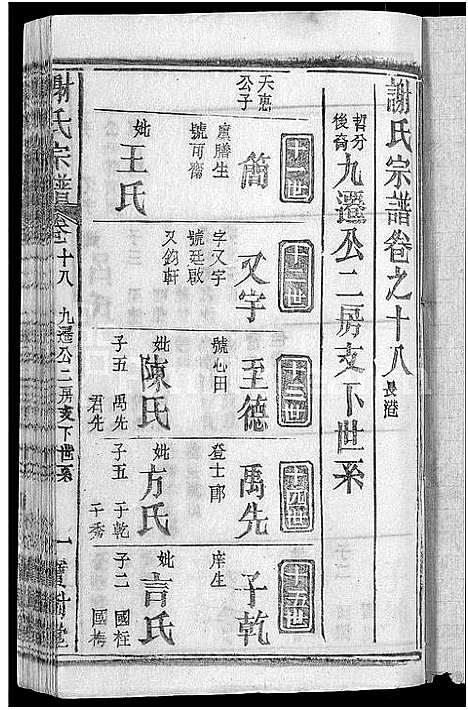 謝氏宗譜卷之十八 長港
哲分後裔 九遷公二房支下世系
十一世
天惠公子
簡
廩膳生
號可齋
妣
王氏
十二世
又宇
字又宇
號廷啟
又鈞軒
十三世
至德
號心田
妣
陳氏
子五 禹先
君先
十四世
禹先
登士郎
妣
方氏
子五 于乾
于秀
十五世
子乾
庠生
妣
言氏
子二 國柱
國梅
謝氏宗譜 卷之十八 九遷公二房支下世系 一 寶樹堂